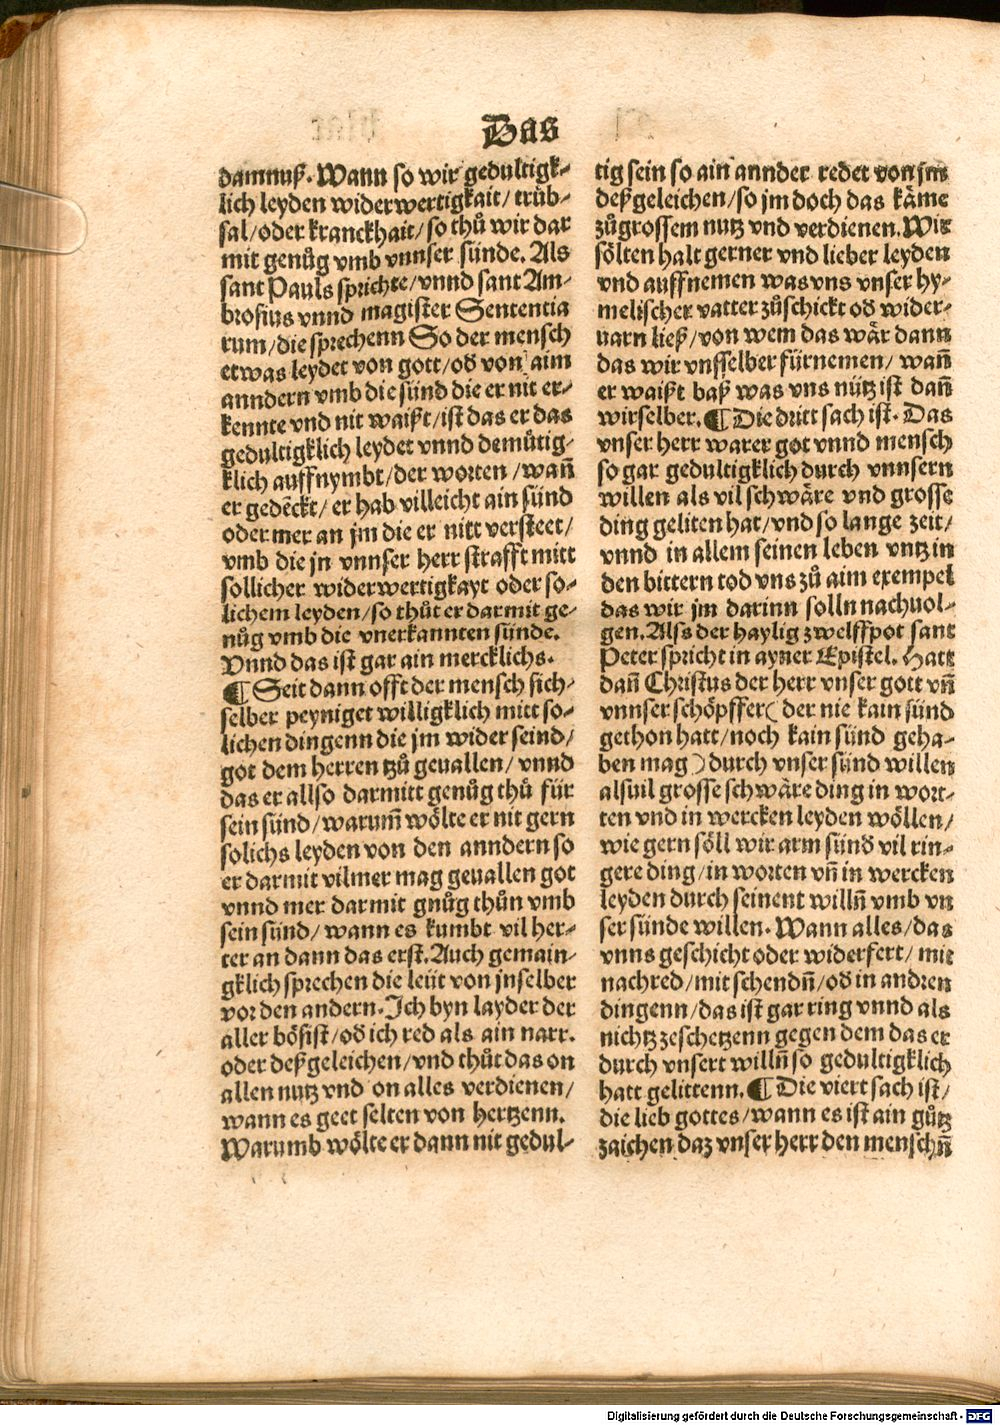 Das
damnuß. Wann so wir gedultigk⸗
lich leyden widerwertigkait/ trüb⸗
sal/oder kranckhait/ so thuͦ wir dar
mit genuͦg vmb vnnser sünde. Als
sant Pauls sprichte/vnnd sant Am⸗
brosius vnnd magister Sententia
rum/die sprechenn So der mensch
etwas leydet von gott/oď von aim
anndern vmb die sünd die er nit er⸗
kennte vnd nit waißt/ist das er das
gedultigklich leydet vnnd demuͤtig⸗
klich auffnymbt/der worten/wañ
er gedēckt/ er hab villeicht ain sünd
oder mer an jm die er nitt versteet/
vmb die jn vnnser herr strafft mitt
sollicher widerwertigkayt oder so⸗
lichem leyden/so thuͦt er darmit ge⸗
nuͦg vmb die vnerkannten sünde.
Vnnd das ist gar ain mercklichs.
¶ Seit dann offt der mensch sich⸗
selber peyniget willigklich mitt so⸗
lichen dingenn die jm wider seind/
got dem herren tzuͦ geuallen/ vnnd
das er allso darmitt genuͦg thuͦ für
sein sünd/warum̄ woͤlte er nit gern
solichs leyden von den anndern so
er darmit vilmer mag geuallen got
vnnd mer darmit gnuͦg thuͦn vmb
sein sünd/ wann es kumbt vil her⸗
ter an dann das erst. Auch gemain⸗
gklich sprechen die leüt von jnselber
vor den andern. Ich byn layder der
aller boͤsist/oď ich red als ain narr.
oder deßgeleichen/vnd thuͦt das on
allen nutz vnd on alles verdienen/
wann es geet selten von hertzenn.
Warumb woͤlte er dann nit gedul⸗
tig sein so ain annder redet von jm
deßgeleichen/so jm doch das kaͤme
zuͦgrossem nutz vnd verdienen. Wir
soͤlten halt gerner vnd lieber leyden
vnd auffnemen was vns vnser hy⸗
melischer vatter zuͦschickt oď wider⸗
uarn ließ/von wem das waͤr dann
das wir vnsselber fürnemen/ wañ
er waißt baß was vns nütz ist dañ
wirselber. ¶ Die dritt sach ist. Das
vnser herr warer got vnnd mensch
so gar gedultigklich durch vnnsern
willen als vil schwaͤre vnd grosse
ding geliten hat/vnd so lange zeit/
vnnd in allem seinen leben vntz in
den bittern tod vns zuͦ aim exempel
das wir jm darinn solln nachuol⸗
gen. Alss der haylig zwelffpot sant
Peter spricht in ayner Epistel. Hatt
dañ Christus der herr vnser gott vñ
vnnser schoͤpffer( der nie kain sünd
gethon hatt/noch kain sünd geha⸗
ben mag ) durch vnser sünd willen
alsuil grosse schwaͤre ding in wor⸗
ten vnd in wercken leyden woͤllen/
wie gern soͤll wir arm sünď vil rin⸗
gere ding/in worten vñ in wercken
leyden durch seinent willñ vmb vn
ser sünde willen. Wann alles/das
vnns geschicht oder widerfert/ mit
nachred/mit schendñ/oď in andren
dingenn/das ist gar ring vnnd als
nichtz zeschetzenn gegen dem das er
durch vnsert willñ so gedultigklich
hatt gelittenn. ¶ Die viert sach ist/
die lieb gottes/wann es ist ain guͦtz
zaichen daz vnser herr den menschñ
Digitalisierung gefördert durch die Deutsche Forschungsgemeinschaft - DFG